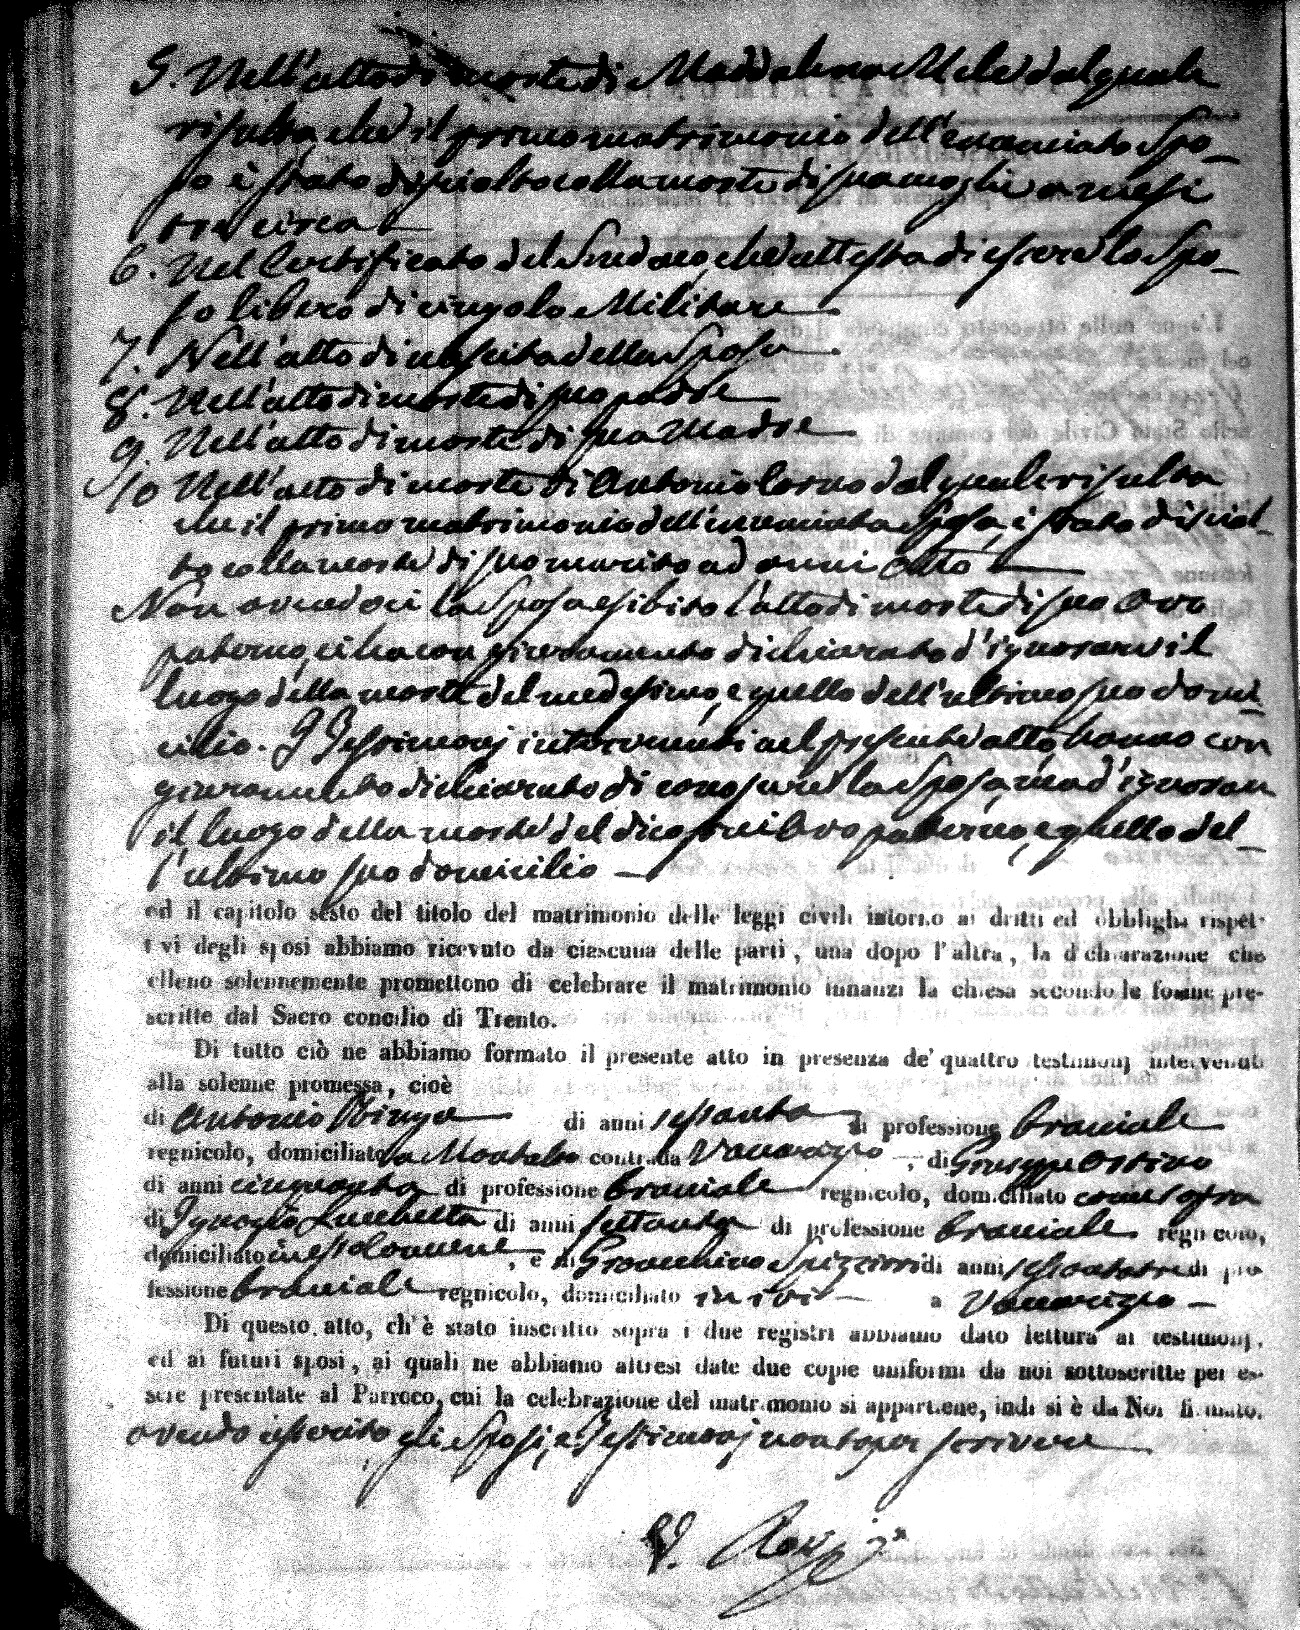 5. Nell'atto di morte di Maddalena Mele dal quale
risulta, che il primo matrimonio dell'enunciato Spo_
so è stato disciolto colla morte di sua moglie a mesi
tre circa
6. Nel Certificato del Sindaco, che attesta di essere lo Spo_
so libero di cingolo Militare
7. Nell'atto di nascita della Sposa
8. Nell'atto di morte di suo padre
9. Nell'atto di morte di sua Madre
10 Nell'atto di morte di Antonio dal quale risulta
che il primo matrimonio dell'enunciata Sposa, è stato disciol_
to colla morte di suo marito ad anni otto
Non avendoci la Sposa esibito l'atto di morte di suo Avo
paterno, ci ha con giuramento dichiarato d'ignorare il
luogo della morte del medesimo, e quello dell'ultimo suo domi_
cilio. I Testimonj intervenuti nel presente atto, hanno con
giuramento dichiarato di conoscere la Sposa, ma d'ignorare
il luogo della morte del di Avo paterno, e quello del_
l'ultimo suo domicilio
ed il capitolo sesto del titolo del matrimonio delle leggi civili intorno ai dritti ed obblighi rispet-
tivi degli sposi abbiamo ricevuto da ciascuna delle parti, una dopo l'altra, la dichiarazione che
elleno solennemente promettono di celebrare il matrimonio innanzi la chiesa secondo le forme pre-
scritte dal Sacro concilio di Trento.
Di tutto ciò ne abbiamo formato il presente atto in presenza de' quattro testimonj intervenuti
alla solenne promessa, cioè
di Antonio di anni sessanta di professione bracciale
regnicolo, domiciliato a Montalto contrada Vaccarizzo, di Giuseppe
di anni cinquanta di professione bracciale regnicolo, domiciliato come sopra
di Ignazio Lucchetta di anni settanta di professione bracciale regnicolo,
domiciliato in esso comune, e di Giovacchino Spizzirri di anni sessantatre di pro-
fessione bracciale regnicolo, domiciliato in ivi a Vaccarizzo
Di questo atto, ch'è stato inscritto sopra i due registri abbiamo dato lettura ai testimonj,
ed ai futuri sposi, ai quali ne abbiamo altresì date due copie uniformi da noi sottoscritte per es-
sere presentate al Parroco, cui la celebrazione del matrimonio si appartiene, indi si è da Noi firmato,
avendo asserito gli Sposi, e Testimonj non saper scrivere